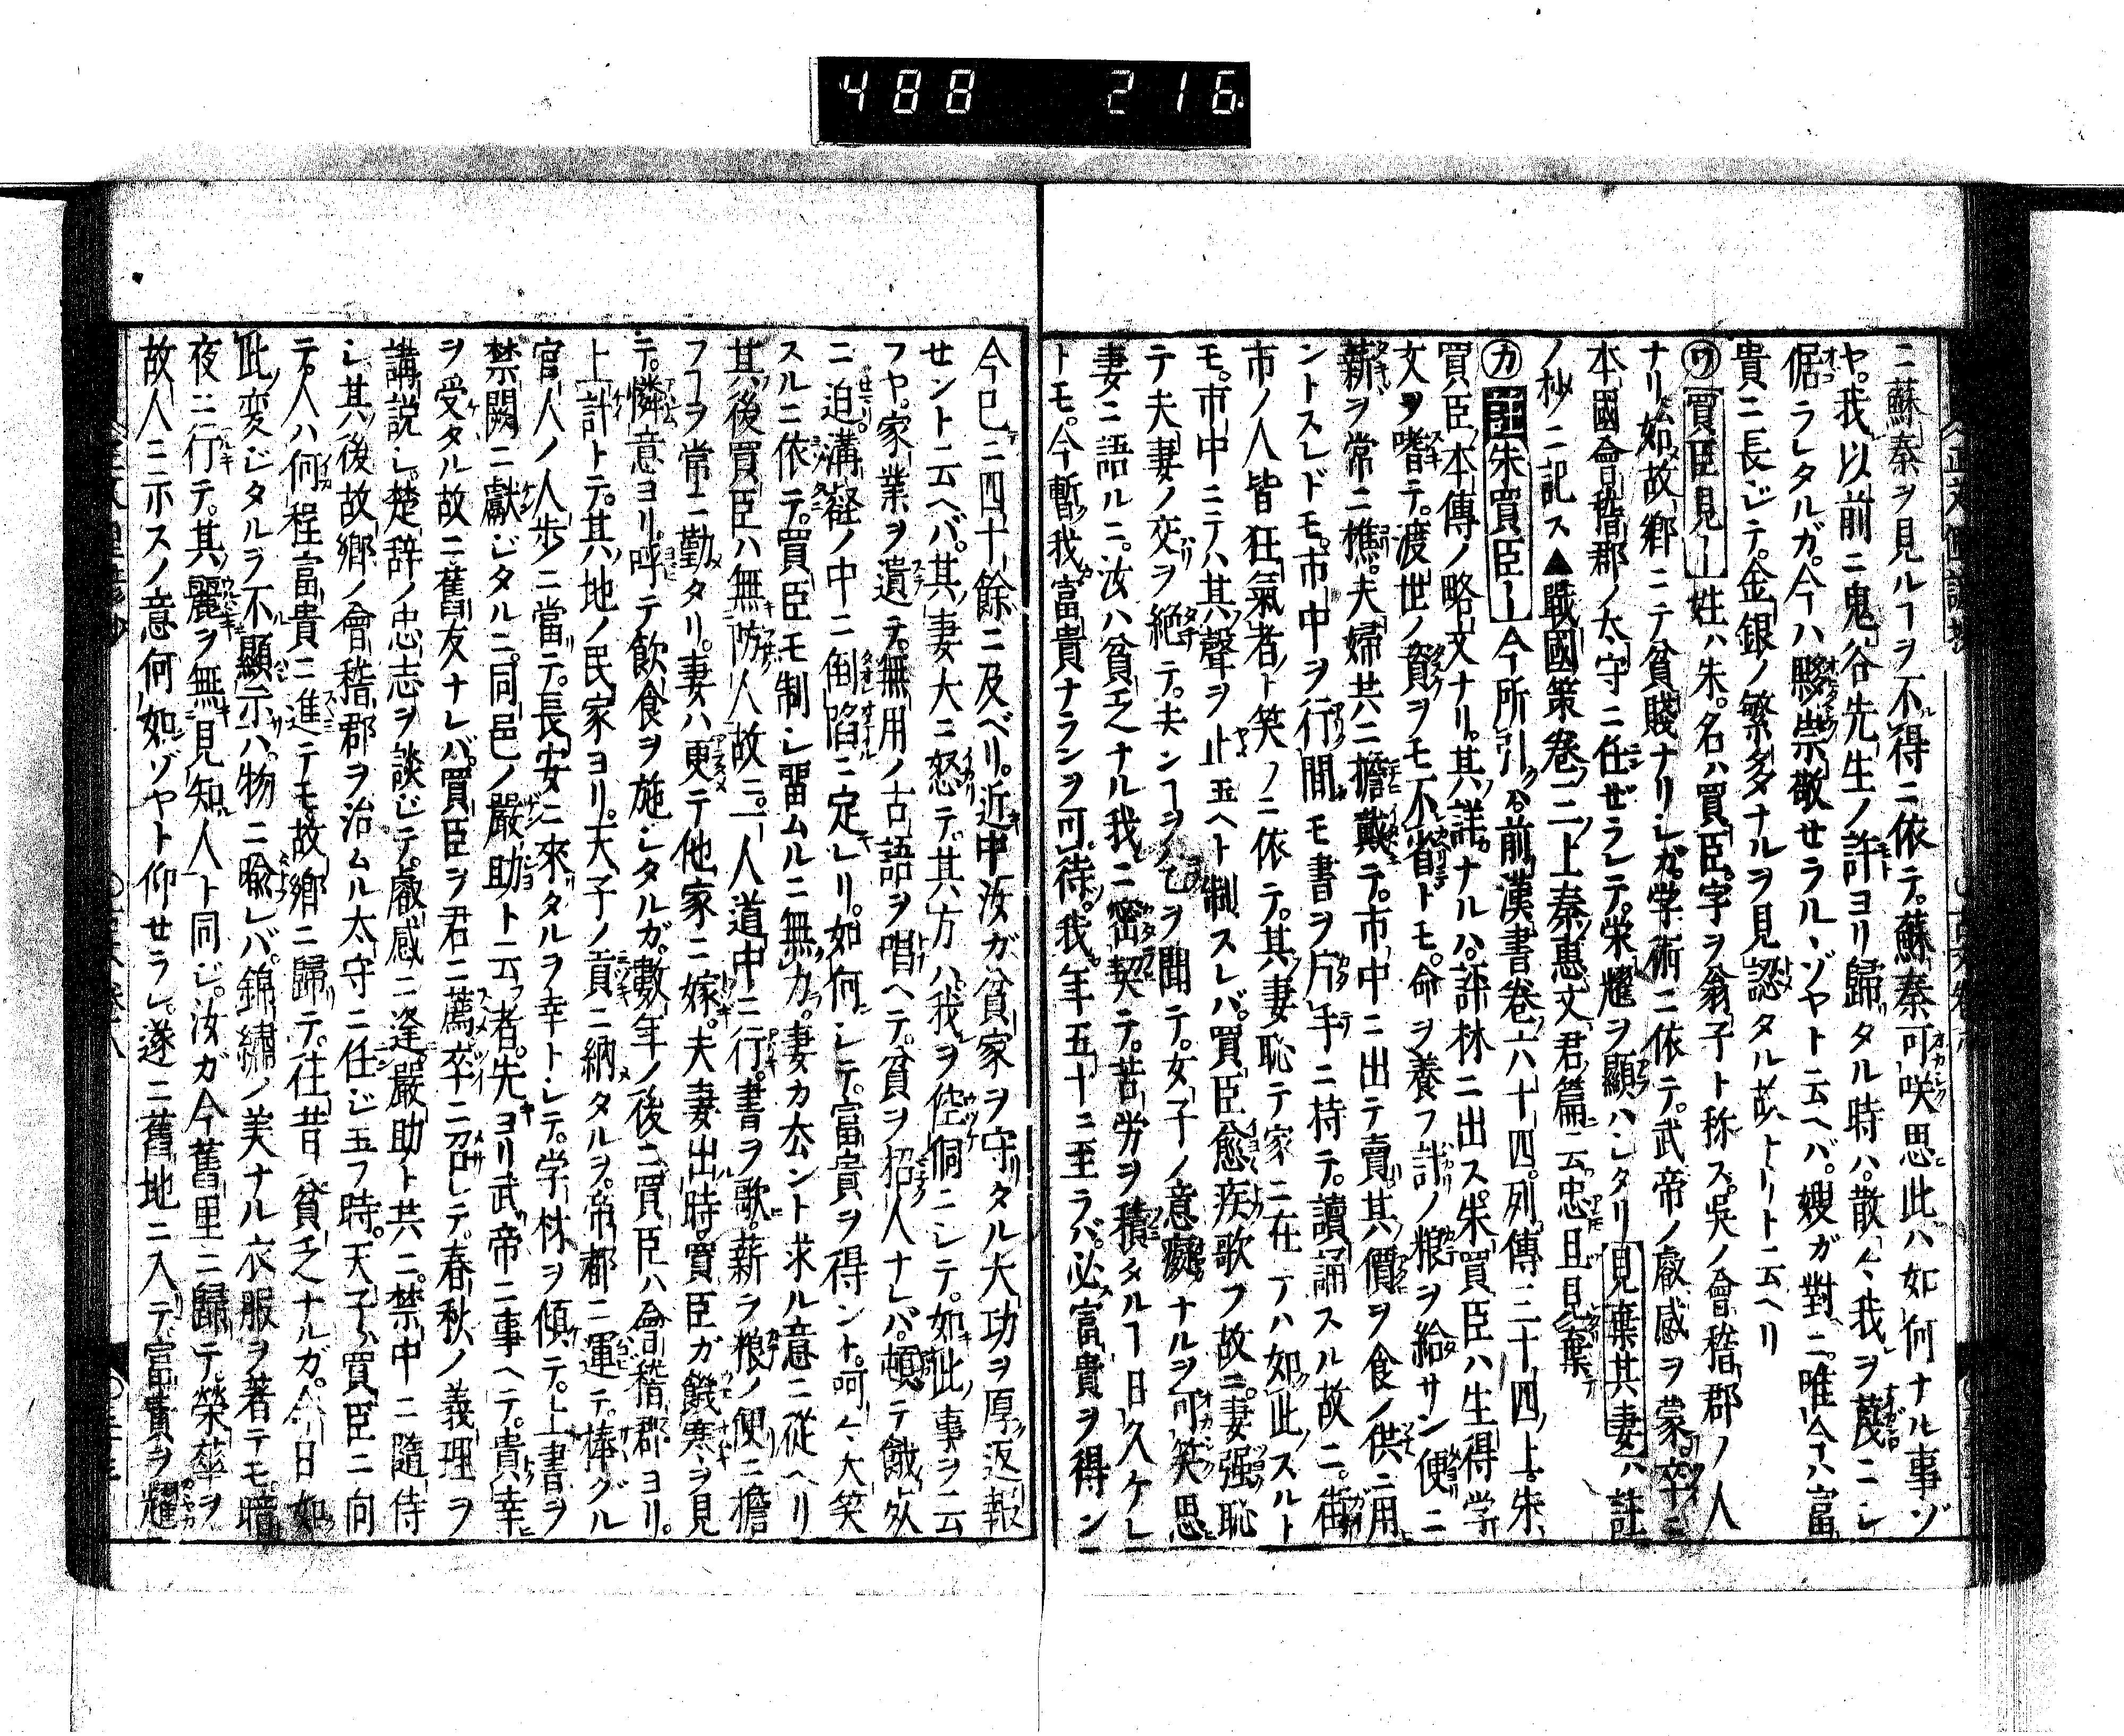 488 216
ニ蘇秦ヲ見ルヿヲ不得ニ依テ。蘇秦可咲思此ハ如何ナル事ゾ
ヤ。我以前ニ鬼谷先生ノ許ヨリ歸リタル時ハ。散〻我ヲ蔑ニシ
倨ラレタルガ。今ハ㒵崇敬セラルヽゾヤト云ヘバ。嫂ガ對ニ。唯今ハ富
貴ニ長ジテ。金銀ノ繁多ナルヲ見認タル故トリト云ヘリ
㋻買臣見ー姓ハ朱。名ハ買臣。字ヲ翁子ト称ス。吳ノ會稽郡ノ人
ナリ始故郷ニテ貧賤ナリシガ。学術ニ依テ。武帝ノ叡感ヲ蒙。卒ニ
本國會稽郡ノ太守ニ任ゼラレテ。栄耀ヲ顯ハシタリ見棄其妻ハ註
ノ抄ニ記ス▲戰國策卷三上秦惠文君篇ニ云忠且見棄
㋕註朱買臣ー今所引ハ前漢書卷六十四。列傳三十四上朱
買臣本傳ノ略文ナリ。其詳ナルハ。評林ニ出ス。朱買臣ハ生得学
文ヲ嗜テ。渡世ノ資ヲモ不省トモ。命ヲ養フ計ノ粮ヲ給サン便ニ
薪ヲ常ニ樵。夫婦共ニ擔戴テ。市中ニ出テ賣其價ヲ食ノ供ニ用
ントスレドモ。市中ヲ行間モ書ヲ片手ニ持テ。讀誦スル故ニ。街
市ノ人皆狂氣者ト笑ノニ依テ。其妻恥テ家ニ在テハ如此スルト
モ。市中ニテハ其聲ヲ止玉ヘト制スレバ。買臣愈疾歌フ故ニ。妻强恥
テ夫妻ノ交ヲ絶テ。去ンヿヲ乞ヲ聞テ。女子ノ意癡ナルヲ可笑思
妻ニ語ルニ。汝ハ貧乏ナル我ニ密契テ。苦労ヲ積タルヿ日久ケレ
トモ。今暫我富貴ナランヲ可待。我年五十ニ至ラバ。必富貴ヲ得ン
今已ニ四十餘ニ及ベリ。近中汝ガ貧家ヲ守リタル大功ヲ厚返報
セント云ヘバ。其妻大ニ怒テ。其方ハ我ヲ倥侗ニシテ。如此事ヲ云
フヤ。家業ヲ遺テ。無用ノ古語ヲ唱ヘテ。貧ヲ招人ナレバ。頓テ餓死
ニ迫。溝壑ノ中ニ倒陷ニ定レリ。如何シテ。富貴ヲ得ント。呵〻大笑
スルニ依テ。買臣モ制シ畱ムルニ無力。妻カ去ント求ル意ニ從ヘリ
其後買臣ハ無防人故ニ。一人道中ニ行。書ヲ歌。薪ヲ粮ノ便ニ擔
フヿヲ常ニ勤タリ。妻ハ更テ他家ニ嫁。夫妻出時。買臣ガ饑寒ヲ見
テ。憐意ヨリ。呼テ飲食ヲ施シタルガ。數年ノ後ニ買臣ハ會稽郡ヨリ。
上計トテ。其地ノ民家ヨリ。天子ノ貢ニ納タルヲ。帝都ニ運テ。棒グル
官人ノ人歩ニ當テ。長安ニ來タルヲ幸トレテ。学材ヲ傾テ。上書ヲ
禁闕ニ獻ジタルニ。同邑ノ嚴助ト云者。先ヨリ武帝ニ事ヘテ。貴幸
ヲ受タル故ニ舊友ナレバ。買臣ヲ君ニ薦卒ニ召レテ。春秋ノ義理ヲ
講説シ。楚辞ノ忠志ヲ談ジテ。叡感ニ逢。嚴助ト共ニ。禁中ニ隨侍
シ其後故鄕ノ會稽郡ヲ治ムル太守ニ任ジ玉フ時。天子買臣ニ向
テ。人ハ何程富貴ニ進テモ。故鄕ニ歸テ。往昔貧乏ナルガ。今日如
此変ジタルヲ不顯示ハ。物ニ喩レバ。錦繡ノ美ナル衣服ヲ著テモ。暗
夜ニ行テ。其麗ヲ無見知人ト同ジ。汝ガ今舊里ニ歸テ。榮華ヲ
故人ニ示スノ意何如ゾヤト仰セラレ。遂ニ舊地ニ入テ。富貴ヲ耀